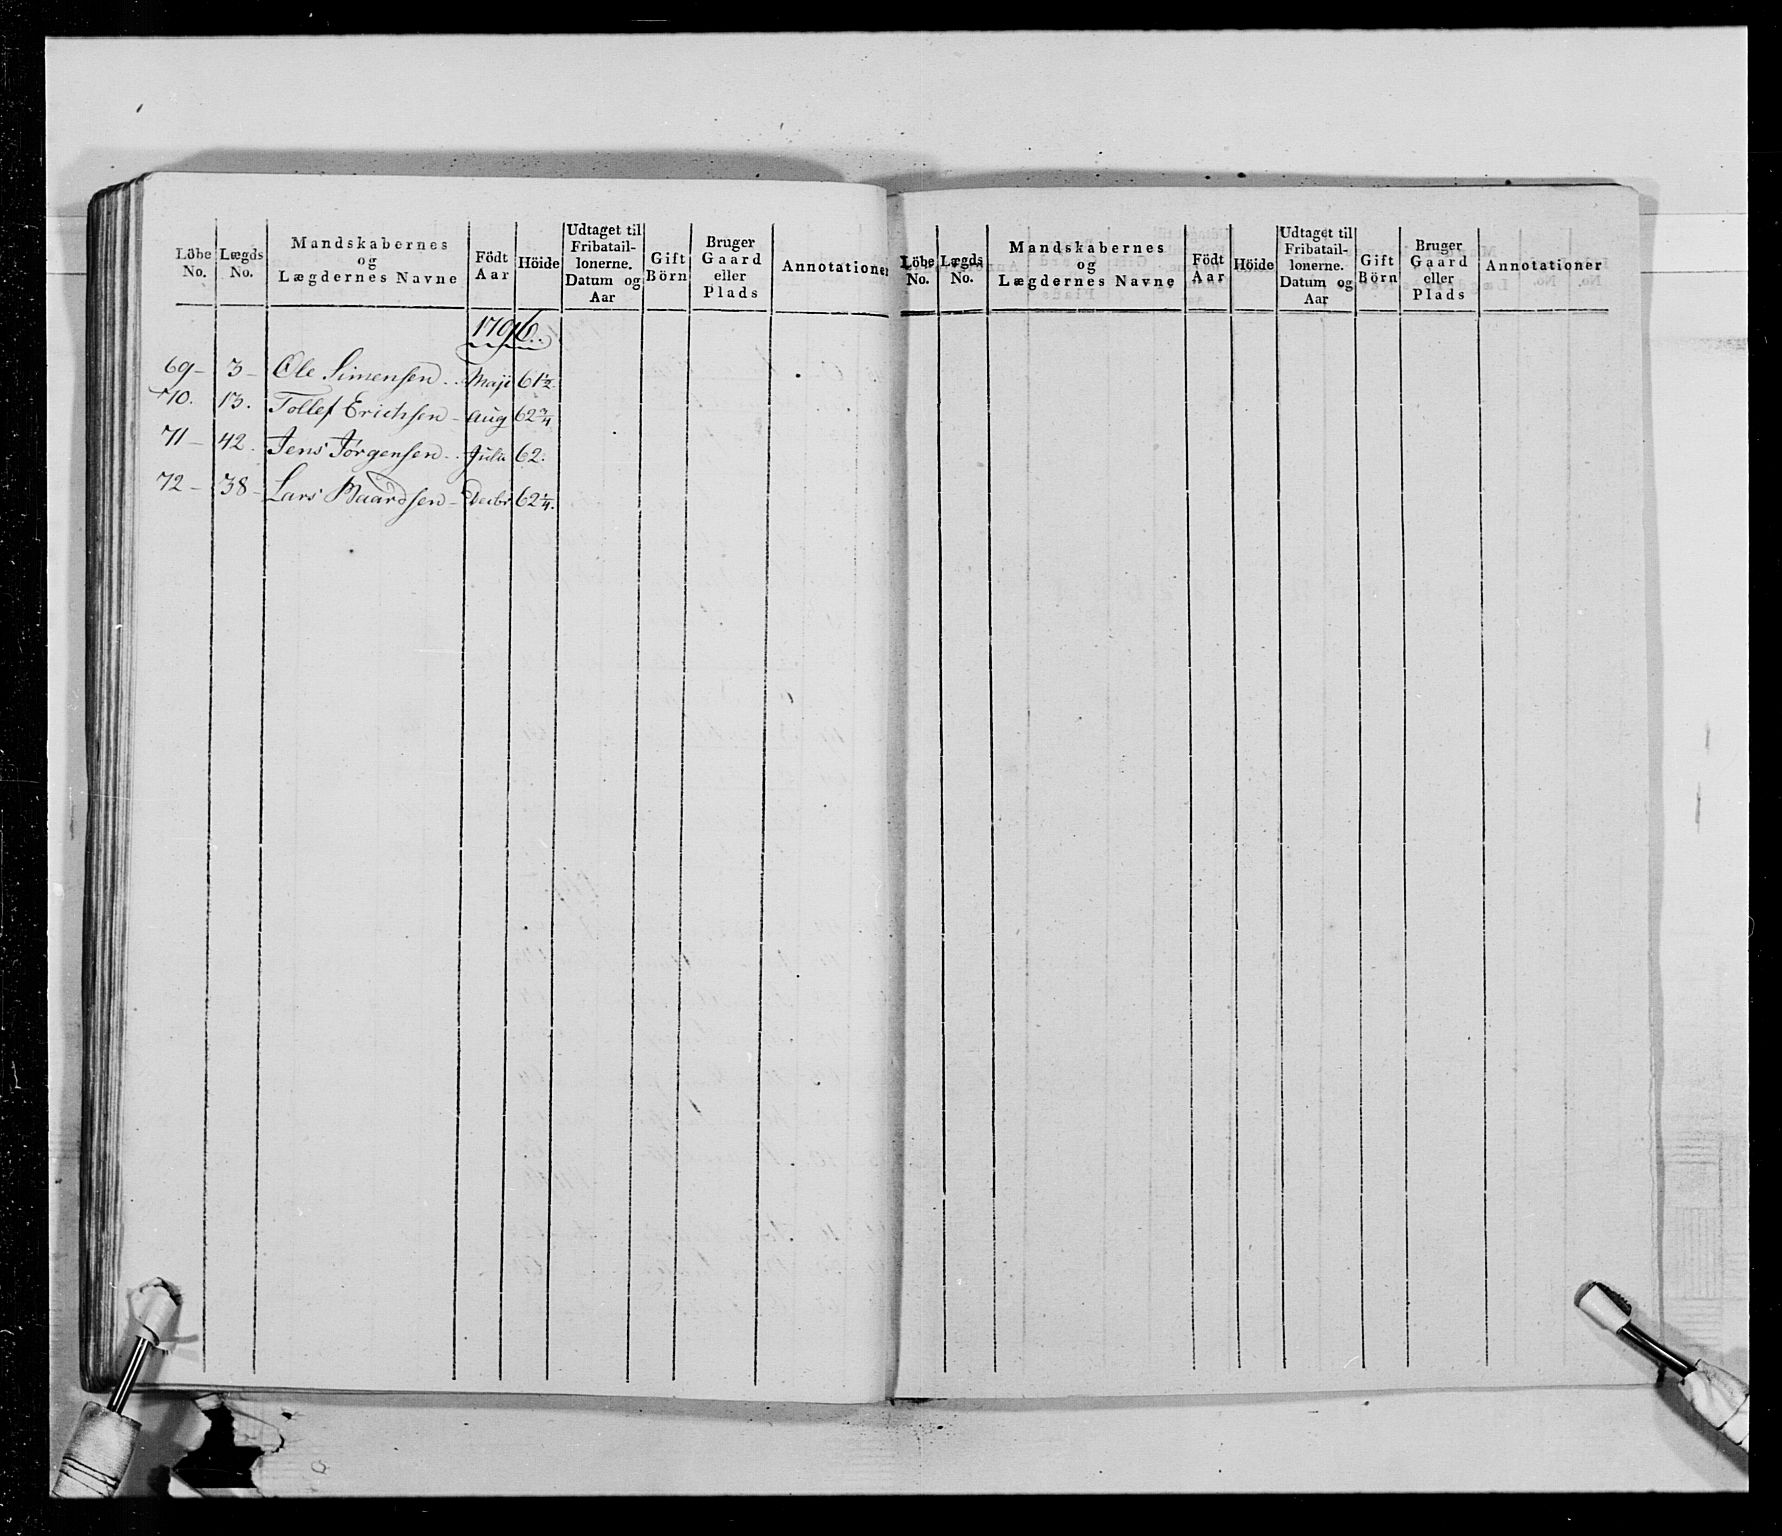 Löbe No. Lægds No. Mandskabernes og Lægdernes Navne Födt Aar Höide Udtaget til Fribatail-lonerne. Datum og Aar Gift Börn Bruger Gaard eller Plads Annotationer
1796.
69– 3– Ole Simensen Maji 61½
70. 13. Tollef Erichsen – Aug 62¾
71– 42. Jens Jørgensen Julii 62.
72– 38– Lars Baardsen – Decbr 62¼.
Löbe No. Lægds No. Mandskabernes og Lægdernes Navne Födt Aar Höide Udtaget til Fribatail-lonerne. Datum og Aar Gift Börn Bruger Gaard eller Plads Annotationer